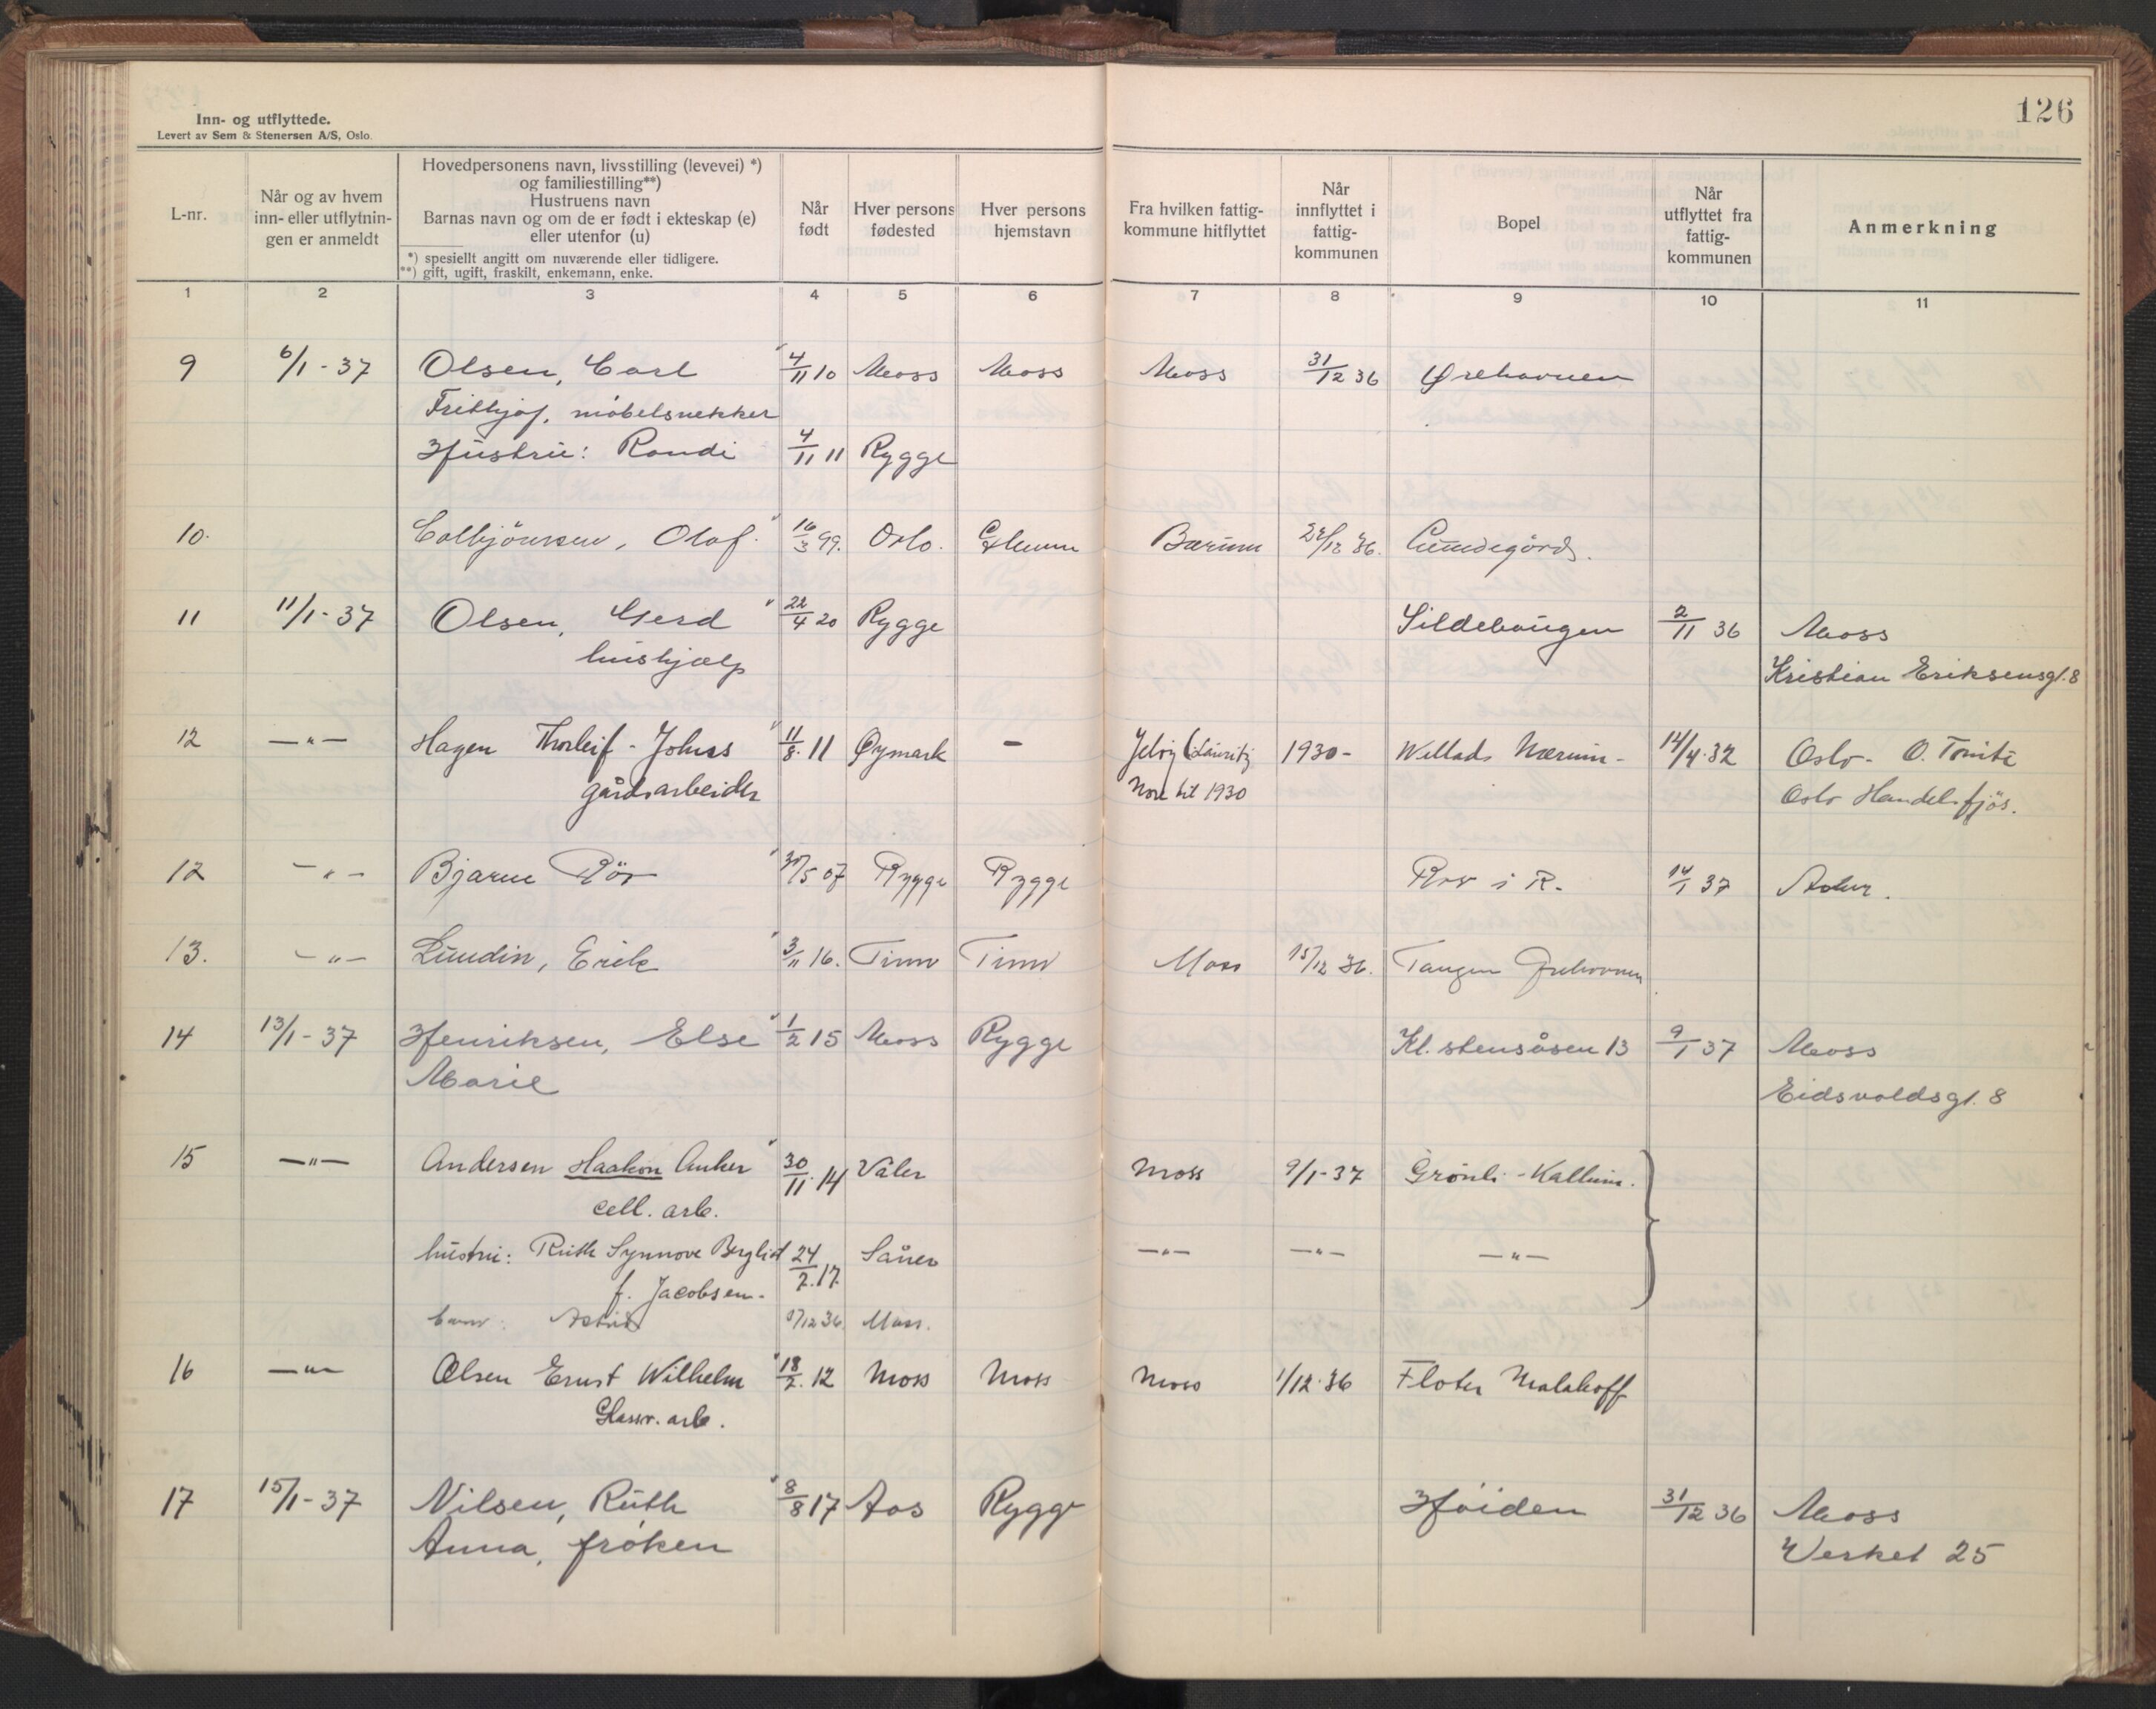 126
Inn- og utflyttede.
Levert av Sem & Stenersen A/S, Oslo.
L-nr.
Når og av hvem inn- eller utflytnin-gen er anmeldt
Hovedpersonens navn, livsstilling (levevei) *)
og familiestilling**)
Hustruens navn
Barnas navn og om de er født i ekteskap (e)
eller utenfor (u)
*) spesiellt angitt om nuværende eller tidligere.
**) gift, ugift, fraskilt, enkemann, enke.
Når født
Hver persons fødested
Hver persons hjemstavn
Fra hvilken fattig-kommune hitflyttet
Når innflyttet i fattig-kommunen
Bopel
Når utflyttet fra fattig-kommunen
Anmerkning
1 2 3 4 5 6 7 8 9 10 11
9 6/1-37 Olsen, Carl 4/11 10 Moss Moss Moss 31/12 36 Ørehavnen
Frithjof, møbelsnekker
Hustru: Randi 4/11 11 Rygge
10. Colbjørnsen, Olaf. 16/3 99. Oslo. Bærum 36.
11 11/1-37 Olsen, Gerd 22/4 20 Rygge Sildebaugen 2/11 36 Moss
hushjælp Kristian Eriksensgt. 8
12 —"— Hagen Thorleif - Johns 11/8. 11 Øymark - Jeløy (Lauritz 1930- Nærum- 14/4.32 Oslo- O.
gårdsarbeider Nore til 1930 Oslo Handelsfjös.
12 -"- Bjarne Rör 07 Rygge Rygge Rör i R. 14/1 37
13. -"- Lundin, Erik 3/11 16. Tinn Tinn Moss 15/12 36. Tangen Ørehavnen
14 13/1-37 Henriksen, Else 1/2 15 Moss Rygge Kl. stensåsen 13 9/1 37 Moss
Marie Eidsvoldsgt. 8
15 —"— Andersen Haakon Anker 30/11. 14 Våler Moss 9/1-37 Grönli-Kallum.
cell. arb.
hustru: Ruth Synnove Bergliot 24/7.17. Såner —"— —"— —"—
f. Jacobsen.
barn: Astrid /12 36. Moss.
16 —"— Olsen Ernst Wilhelm 18/7. 12 Moss Moss Moss 1/12.36 Floter Malakoff
Glassv. arb.
17 15/1-37 Nilsen, Ruth 8/8 17 Aas Rygge Høiden 31/12 36 Moss
Anna, frøken Verket 25